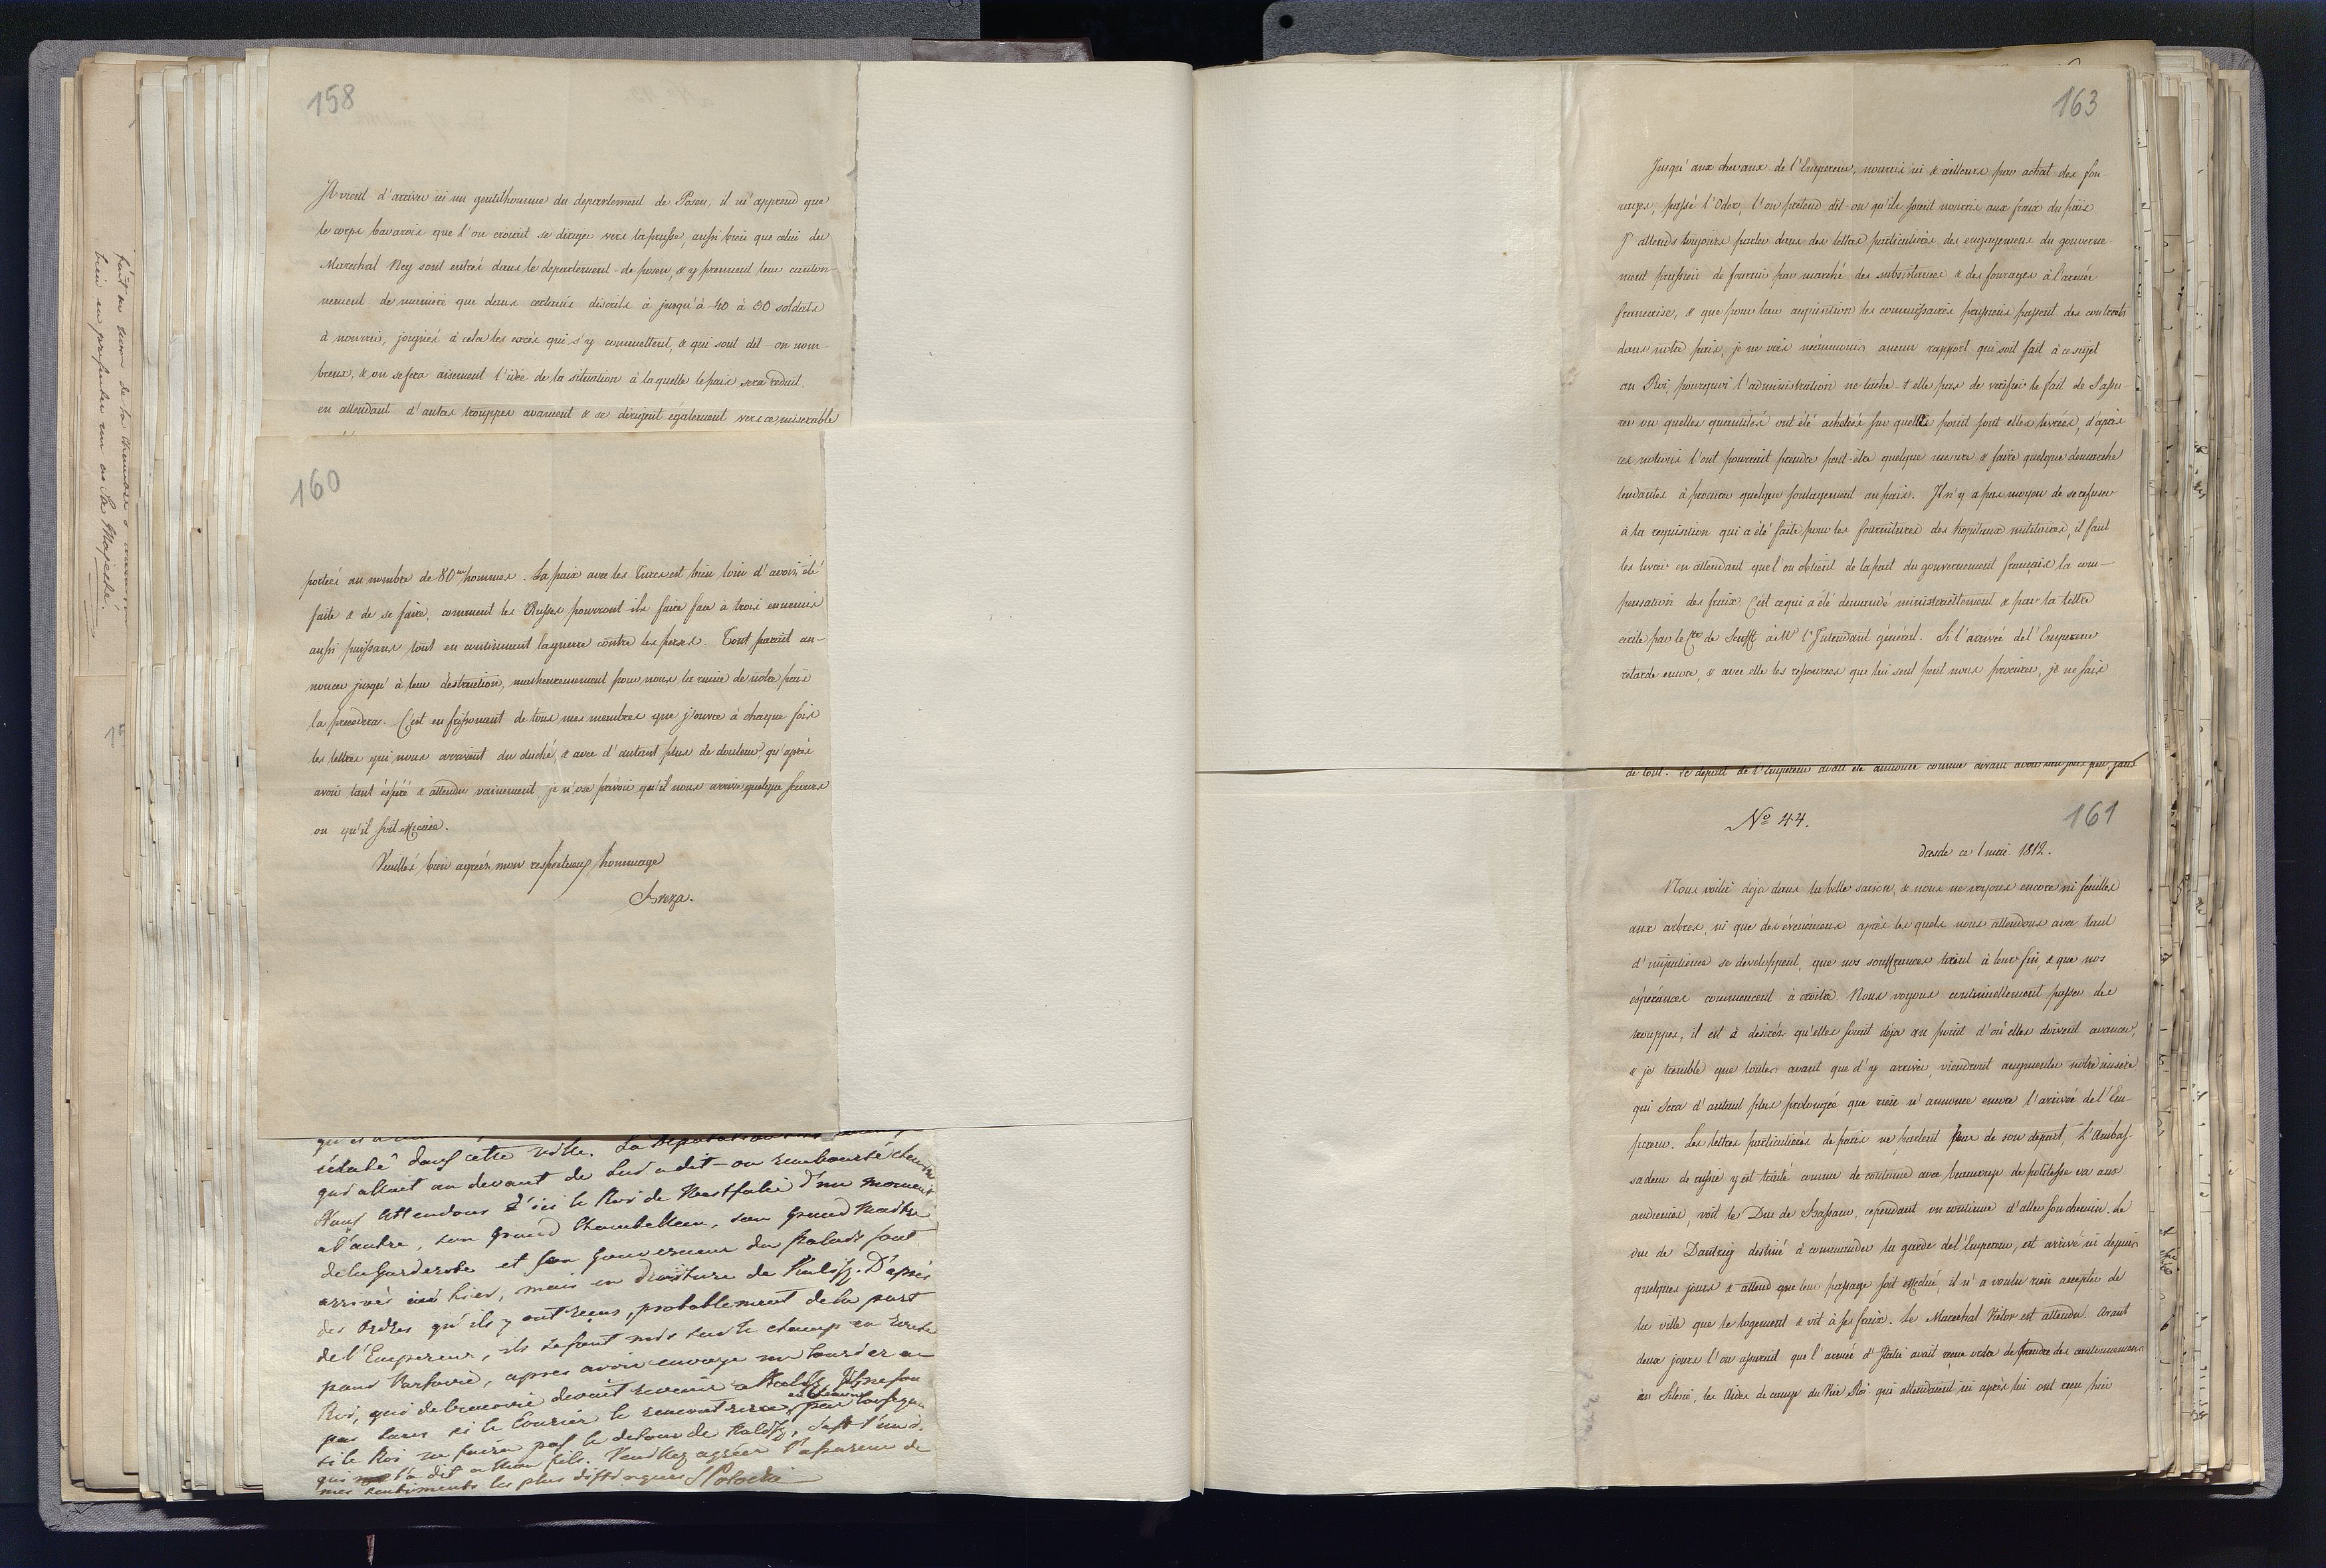 158
Il vient d'arriver ici un gentilhomme du departement de Posen, il m'apprend que
le corps bavarois que l'on croiait se diriger vers la prusse, aussi bien que celui du
Marechal Ney sont entrés dans le departement de posen, & y prennent leur canton-
nement de maniere que dans certains discrits à jusqu'à 40 à 50 soldats
à nourrir, joignés à cela les excès qui s'y commettent, & qui sont dit-on nom-
breux, & on se fera aisement l'idée de la situation à laquelle le païs sera reduit.
en attendant d'autres trouppes avancent & se dirigent egalement vers ce miserable
160
portées au nombre de 80 m hommes. La paix avec les Turcs est bien loin d'avoir été
faite & de se faire, comment les Russes pourront-ils faire face à trois ennemis
aussi puissans, tout en continuant la guerre contre les perses. Tout parait an-
noncer jusqu'à leur destruction, malheureusement pour nous la ruine de notre païs
la precedera. C'est en frissonant de tous mes membres que j'ouvre à chaque fois
les lettres qui nous arrivent du duché, & avec d'autant plus de douleur, qu'après
avoir tant espéré & attendu vainement, je n'ose prévoir qu'il nous arrive quelque secours
ou qu'il soit efficace.
Veuillés bien agréer mon respectueux hommage
Breza.
dans cette ville. La Deputation
qui allait au devant de lui a dit-on remboursé chemin
Nous attendons d'ici le Roi de Westfalie d'un moment
a l'autre, son grand Chambellan, son grand Maitre
de la Garderobe et son Gouverneur du Palais sont
arrivés ici hier, mais en droiture de Kalisz. D'après
des Ordres qu'ils y ont reçus, probablement de la part
de l'Empereur, ils se sont mis sur le champ en route
pour Varsovie, apres avoir envoyé un Courier au
Roi, qui devait revenir a Kalisz. Il ne sera
pas si le Courier le rencontrera en chemin, par conseq.
si le Roi ne faira pas le detour de Kalisz, c'est
qui l'a dit a Mon fils. Veuillez agréer l'assurance de
mes sentiments les plus distingués SPotocki
fait en
bien en presenter un au Sa Majesté.
163
Jusqu'aux chevaux de l'Empereur, nourris ici & ailleurs par achat des fou-
rages, passé l'Oder, l'on pretend dit-on qu'ils soient nourris aux fraix du païs
J'attends toujours parler dans des lettres particulieres, des engagemens du gouverne-
ment prussien de fournir par marché des subsistances & des fourages à l'armée
francaise, & que pour leur acquisition les commissaires prussiens passent des contrats
dans notre païs, je ne vois néanmoins aucun rapport qui soit fait à ce sujet
au Roi, pourquoi l'administration ne tache-t-elle pas de verifier le fait de s'assu-
rer ou quelles quantités ont été achetées sur quelle point sont elles livrées, d'après
ces notions l'ont pourrait prendre peut-être quelque mesure & faire quelque demarche
tendantes à procurer quelque soulagement au païs. Il n'y a pas moyen de se refuser
à la requisition qui a été faite pour les fournitures des hopitaux militaires, il faut
les livrer en attendant que l'on obtient de la part du gouvernement français la com-
pensation des fraix. C'est ce qui a été demandé ministeriellement & par la lettre
ecrite par le Cte de Senfft à Mr l'Intendant général. Si l'arrivée de l'Empereur
retarde encore, & avec elle les ressources que lui seul peut nous procurer, je ne sais
de tout. le depart de l'Empereur avait été annoncé comme devant avoir lieu
161
No 44.
dresde ce 1 mai. 1812.
Nous voilà deja dans la belle saison, & nous ne voyons encore ni feuilles
aux arbres, ni que des évenémens après les quels nous attendons avec tant
d'impatience se developpent, que nos souffrances tirent à leur fin, & que nos
espérances commencent à croitre. Nous voyons continuellement passer des
trouppes, il est à desirer qu'elles soient deja au point d'où elles doivent avancer,
& je tremble que toutes avant que d'y arriver, viendront augmenter notre misère,
qui sera d'autant plus prolongée que rien n'annonce encore l'arrivée de l'Em-
pereur. Les lettres particulieres de paris ne parlent pas de son depart, L'Ambas-
sadeur de russie y est traité comme de coutume avec beaucoup de politesse va aux
audiences, voit le Duc de Bassano, cependant on continue d'aller son chemin. Le
duc de Dantzig destiné à commander la garde de l'Empereur, est arrivé ici depuis
quelques jours & attend que leur passage soit effectué, il n'a voulu rien accepter de
la ville que le logement & vit à ses fraix. le Marechal Victor est attendu. Avant
deux jours l'on assurait que l'armée d'Italie avait reçue ordre de prendre des cantonnemens
en Silesie, les Aides de camp du Vice Roi qui attendaient ici après lui ont reçu hier